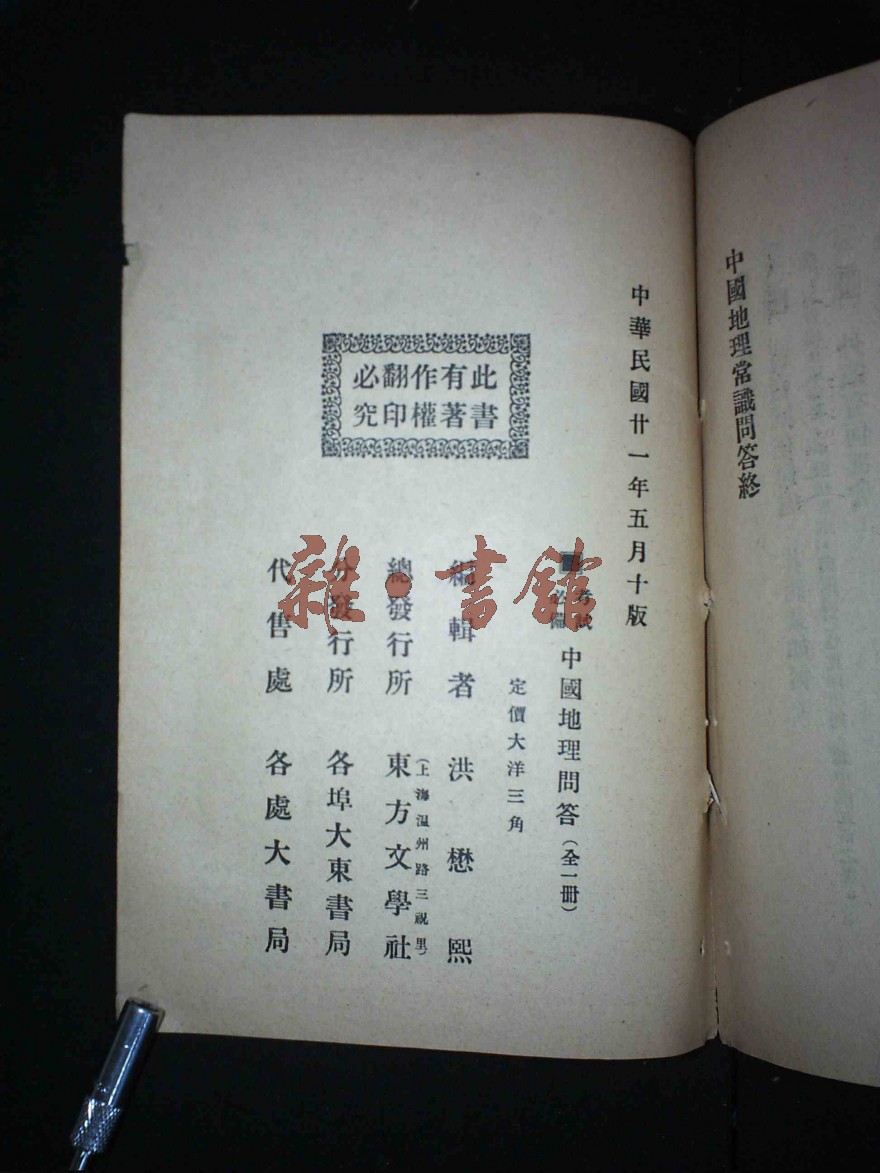 中國地理常識問答終
中華民國廿一年五月十版
考試必備 中國地理問答（全一冊）
定價大洋三角
編輯者 洪懋熙
（上海溫州路三視里）
總發行所 東方文學社
分發行所 各埠大東書局
代售處 各處大書局
此書
有著
作權
翻印
必究
雜·書館